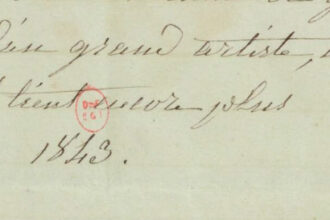 un grand artiste,
tient encor plus
1843.